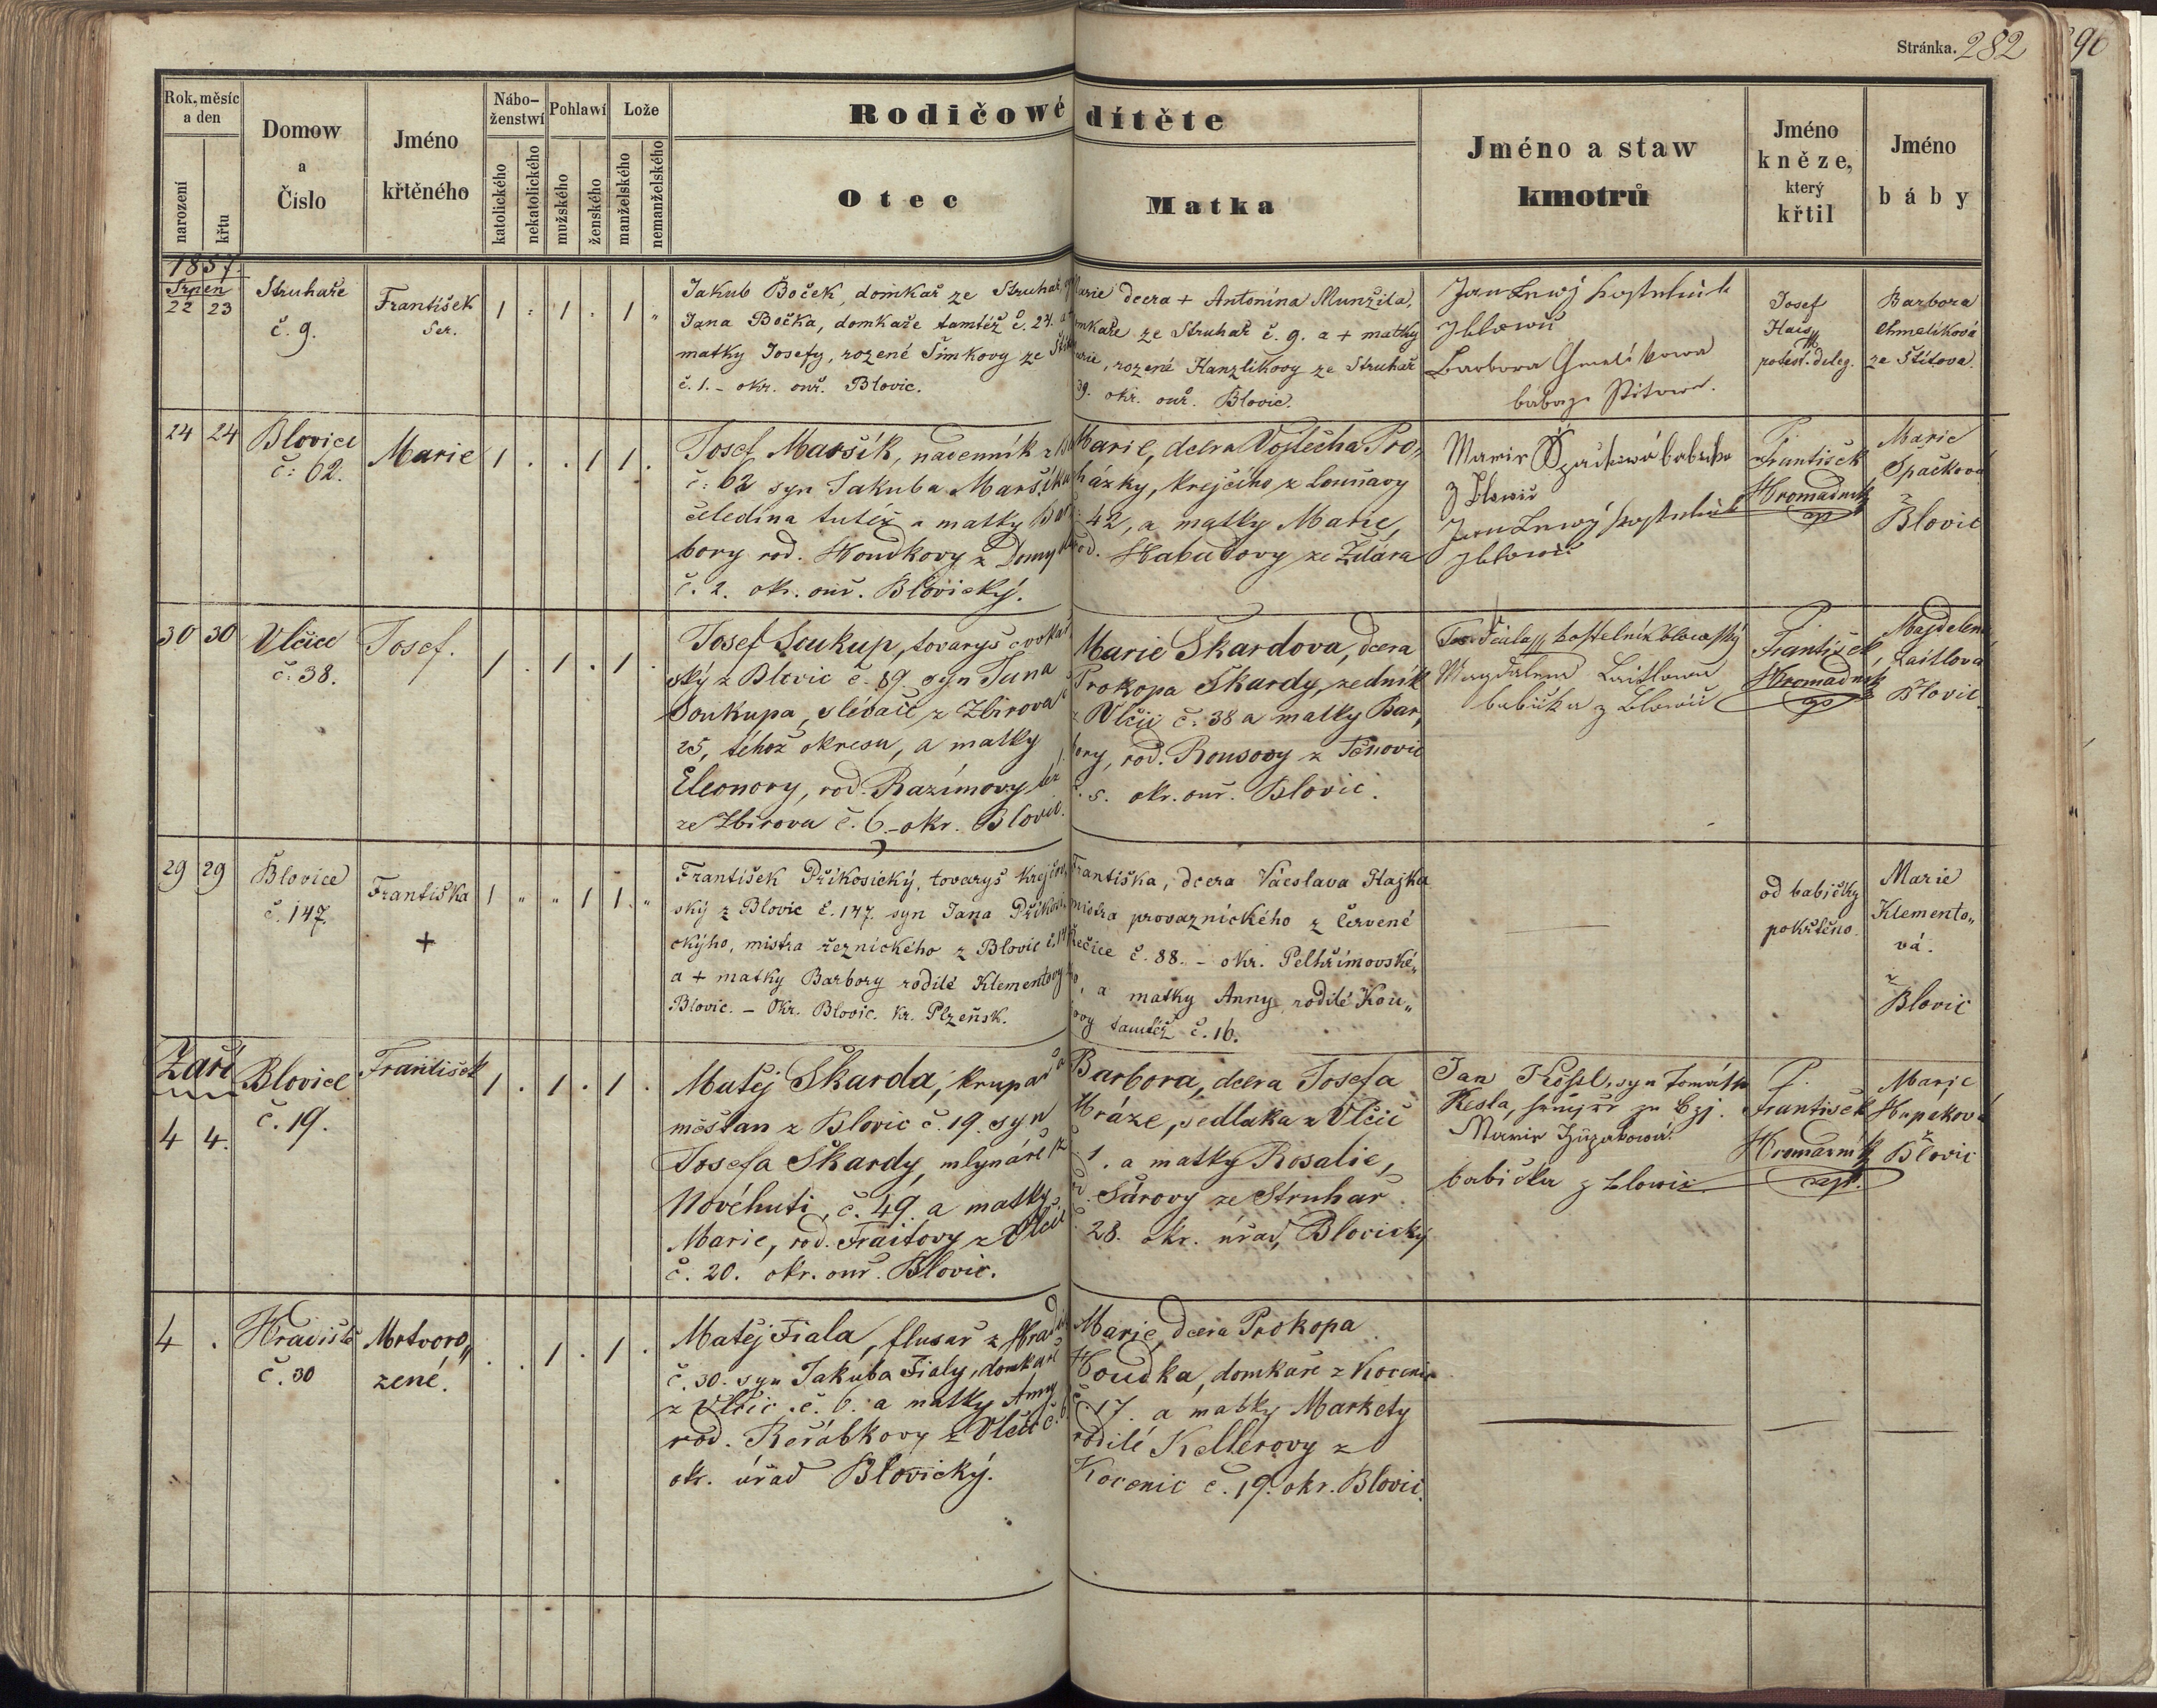 Stránka. 282
96
Rok, měsíc
a den
narození
křtu
Domow
a
Číslo
Jméno
křtěného
Nábo-
ženstwí
katolického
nekatolického
Pohlawí
mužského
ženského
Lože
manželského
nemanželského
Rodičowé dítěte
Otec
Matka
Jméno a staw
kmotrů
Jméno
kněze,
který
křtil
Jméno
báby
1857.
Srpen
22 23
Struhaře
č. 9.
František
Ser.
1 . 1 . 1 "
Jakub Boček, domkař ze Struhař,
Jana Bočka, domkaře tamtéž č. 24. a
matky Josefy, rozené Šimkovy ze
č. 1. - okr. ouř. Blovic.
Marie dcera + Antonína Munzila,
domkaře ze Struhař č. 9. a + matky
Marie, rozené Kanzlíkovy ze Struhař
39. okr. ouř. Blovic.
Jan
Barbora
Josef
Hais
protest. deleg.
Barbora
Chmelíková
ze Štítova.
24 24
Blovice
č: 62.
Marie
1 . . 1 1 .
Josef Maršík, nádenník z
č: 62 syn Jakuba Maršíka
čeledína tutéž a matky Bar
bory rod. Houdkovy z
č. 2. okr. ouř. Blovický.
Marie, dcera Vojtěcha Pro,
házky, krejčího z Louňavy
42, a matky Marie,
rod. Habětovy ze Žďára
Marie Špačková babička
z Blowic
Jan
P.
František
Hromadník
Marie
Špačková
z
Blovic
30 30
Vlčice
č: 38.
Josef.
1 . 1 . 1 .
Josef Soukup, tovaryš cvokař
ský z Blovic č. 89 syn Jana
Soukupa, slévače z Zbirova č
25, téhož okresu, a matky
Eleonory, rod. Razímovy též
ze Zbirova č. 6. - okr. Blovic.
Marie Škardova, dcera
Prokopa Škardy, zedník
z Vlčic č: 38 a matky Bar,
bory, rod. Rousovy z Těnovic
č. 5. okr. ouř. Blovic.
Jos. Fiala kostelník blowický
Magdalena Laitlowa
babička z Blowic
P.
František
Hromadník
Majdelena
Laitlová
z Blovic.
29 29
Blovice
č. 147.
Františka
+
1 " " 1 1. "
František Příkosický, tovaryš krejčov,
ský z Blovic č. 147. syn Jana Příkosi,
ckýho, mistra řeznického z Blovic č. 147
a + matky Barbory rodilé Klementovy
Blovic. - Okr. Blovic. kr. Plzeňsk.
Františka, dcera Váceslava Hajka
mistra provaznického z Červené
Řečice č. 88. - okr. Pelhřimovské„
ho, a matky Anny, rodilé Kou„
bovy tamtéž č. 16.
od babičky
pokřtěno.
Marie
Klemento„
vá.
z
Blovic
Září
4 4.
Blovice
č. 19.
František
1 . 1 . 1 .
Matěj Škarda, krupař a
měšťan z Blovic č. 19. syn
Josefa Škardy, mlynáře z
Novéhuti, č. 49. a matky
Marie, rod. Fraitovy z Vlčic
č. 20. okr. ouř. Blovic.
Barbora, dcera Josefa
Hráze, sedláka z Vlčic
č 1. a matky Rosalie,
rod. Sůrovy ze Struhař
č. 28. okr. úřad, Blovický
Jan Kössl, syn Tomáše
Kesla,
Marie
babička z Blowic
P.
František
Hromadník
cap.
Marie
Hupaková
z
Blovic
4 .
Hradiště
č. 30
Mrtvoro„
zené.
. . 1 . 1 .
Matěj Fiala, flusař z Hradiš
č. 30. syn Jakuba Fialy, domkaře
z Vlčic č. 6. a matky Anny
rod. Reřábkovy z Vlčic č. 6.
okr. úřad Blovický.
Marie, dcera Prokopa
Houdka, domkaře z Kocenic
č 17. a matky Markéty
rodilé Kellerovy z
Kocenic č. 19. okr. Blovic.